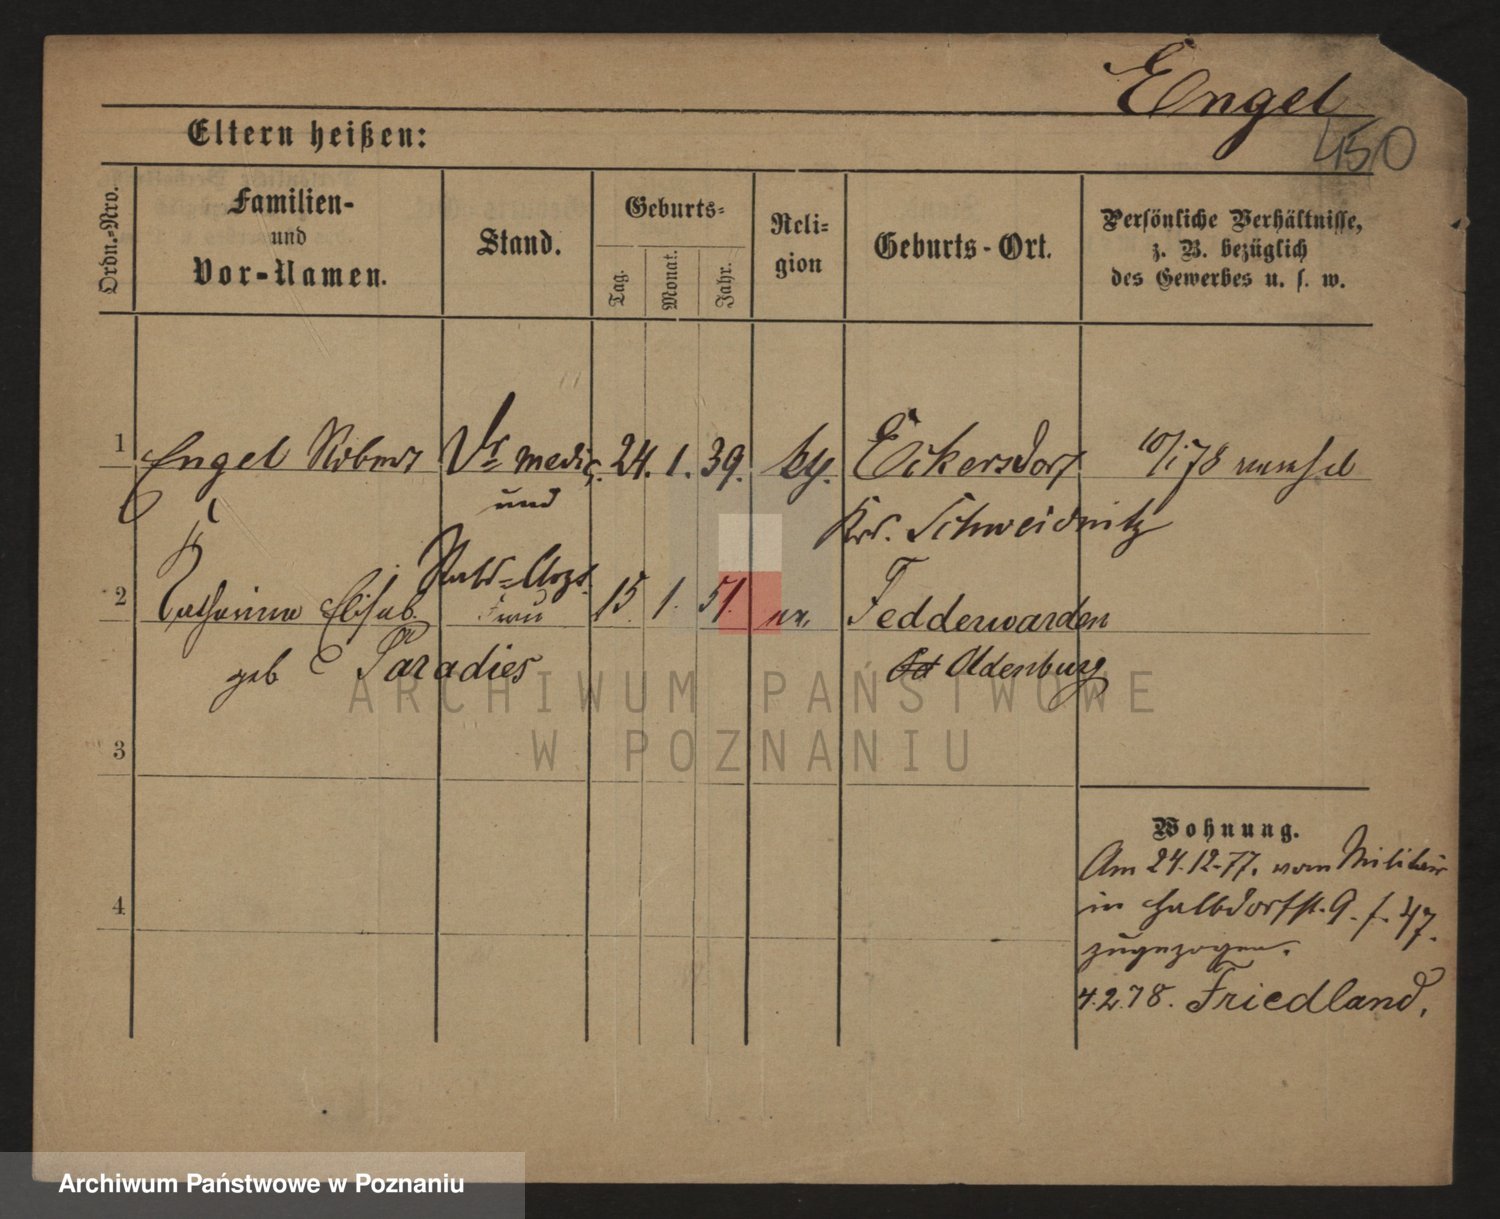 Engel
450
Eltern heißen:
Ordn.-Nro.
Familien-
und
Vor-Namen.
Stand.
Geburts-
Tag.
Monat.
Jahr.
Reli-
gion
Geburts-Ort.
Persönliche Verhältnisse,
z. B. bezüglich
des Gewerbes u. s. w.
1 Engel Robert Dr medic. 24. 1. 39. Eckersdorf 10/1 78
und
Krs. Schweidnitz
Stabs-Arzt.
2 Catharina Elisab. Frau 15 1. 51. ev. Fedderwarden
geb Paradies Oldenburg
3
4
Wohnung.
Am 24.12.77. vom Militair
in Halbdorfst. 9. f. 47.
zugezogen.
4.2.78. Friedland.
ARCHIWUM PAŃSTWOWE
W POZNANIU
Archiwum Państwowe w Poznaniu